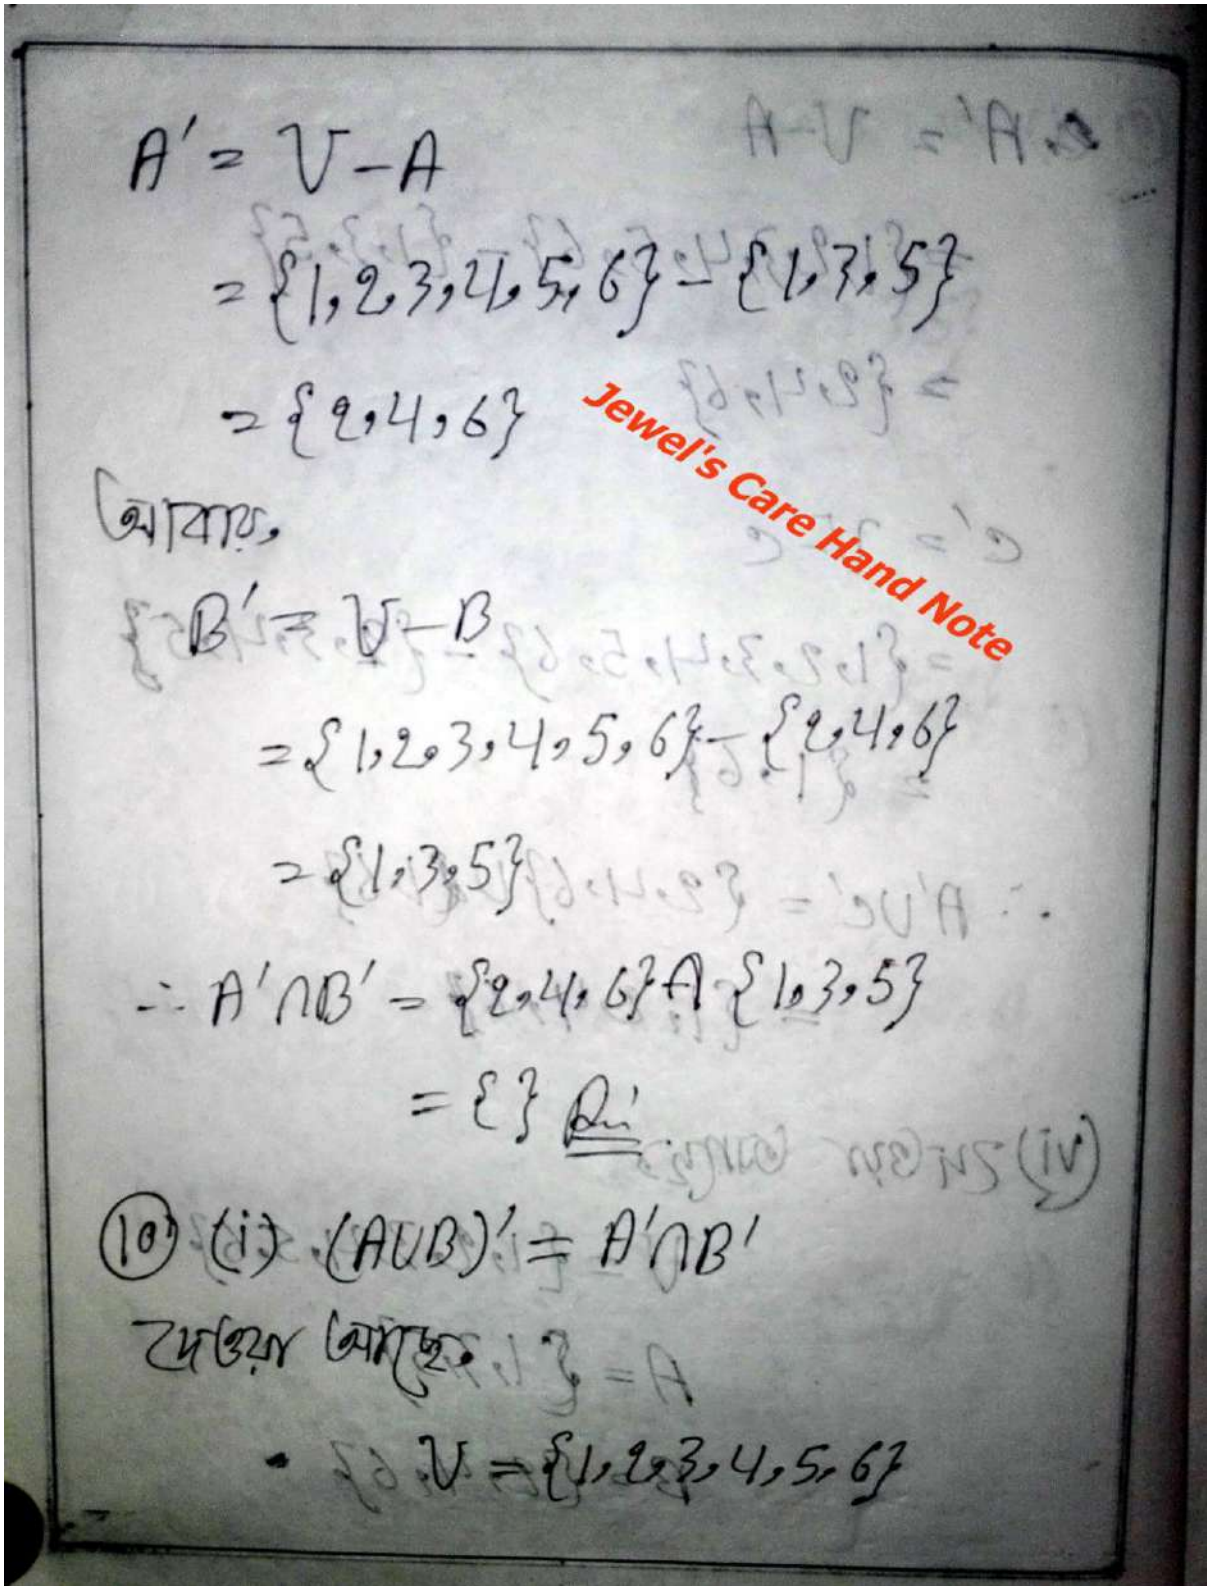 A' = U - A
= {1, 2, 3, 4, 5, 6} - {1, 3, 5}
= {2, 4, 6}
Jewel's Care Hand Note
আবার,
B' = U - B
= {1, 2, 3, 4, 5, 6} - {2, 4, 6}
= {1, 3, 5}
∴ A' ∩ B' = {2, 4, 6} ∩ {1, 3, 5}
= { }
10 (i) (A∪B)' = A' ∩ B'
দেওয়া আছে,
U = {1, 2, 3, 4, 5, 6}